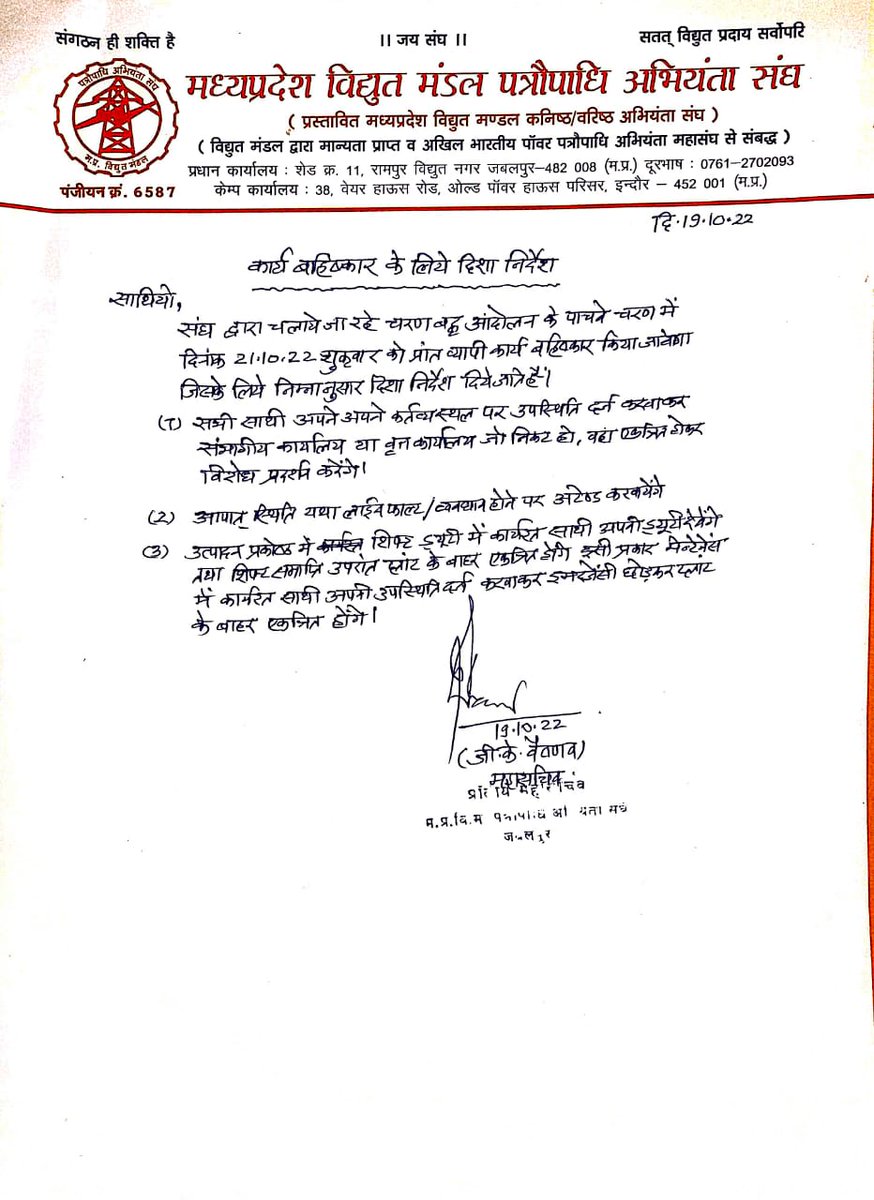 संगठन ही शक्ति है
।। जय संघ ।।
सतत् विद्युत प्रदाय सर्वोपरि
पत्रोपाधि अभियंता संघ
म.प्र. विद्युत मंडल
मध्यप्रदेश विद्युत मंडल पत्रौपाधि अभियंता संघ
( प्रस्तावित मध्यप्रदेश विद्युत मण्डल कनिष्ठ/वरिष्ठ अभियंता संघ )
( विद्युत मंडल द्वारा मान्यता प्राप्त व अखिल भारतीय पॉवर पत्रौपाधि अभियंता महासंघ से संबद्ध )
प्रधान कार्यालय : शेड क्र. 11, रामपुर विद्युत नगर जबलपुर–482 008 (म.प्र.) दूरभाष : 0761-2702093
पंजीयन क्रं. 6587
केम्प कार्यालय : 38, वेयर हाऊस रोड, ओल्ड पॉवर हाऊस परिसर, इन्दौर – 452 001 (म.प्र.)
दि.19.10.22
कार्य बहिष्कार के लिये दिशा निर्देश
साथियो,
संघ द्वारा चलाये जा रहे चरण बद्ध आंदोलन के पाचवे चरण में
दिनांक 21.10.22 शुक्रवार को प्रांत व्यापी कार्य बहिष्कार किया जावेगा
जिसके लिये निम्नानुसार दिशा निर्देश दिये जाते है।
(1) सभी साथी अपने अपने कर्तव्यस्थल पर उपस्थिति दर्ज करवाकर
संभागीय कार्यालय या वृत्त कार्यालय जो निकट हो, वहां एकत्रित होकर
विरोध प्रदर्शन करेंगे।
(2) आपात् स्थिति यथा लाईन फाल्ट/व्यवधान होने पर अटेण्ड करवायेंगे
(3) उत्पादन प्रकोष्ठ में कार्यरत शिफ्ट ड्यूटी में कार्यरत साथी अपनी ड्यूटी देवेंगे
तथा शिफ्ट समाप्ति उपरांत प्लांट के बाहर एकत्रित होंगे इसी प्रकार मेन्टेनेंस
में कार्यरत साथी अपनी उपस्थिति दर्ज करवाकर इमरजेंसी छोड़कर प्लांट
के बाहर एकत्रित होंगे।
19.10.22
(जी.के. वैष्णव)
महासचिव
म.प्र.वि.म